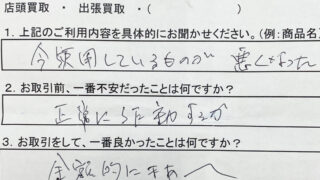 店頭買取 ・ 出張買取 ・(            )
1. 上記のご利用内容を具体的にお聞かせください。(例:商品名
今頃用しているものが 悪くなった
2. お取引前、一番不安だったことは何ですか?
正常に作動するか
3. お取引をして、一番良かったことは何ですか?
金額的にまあ〜